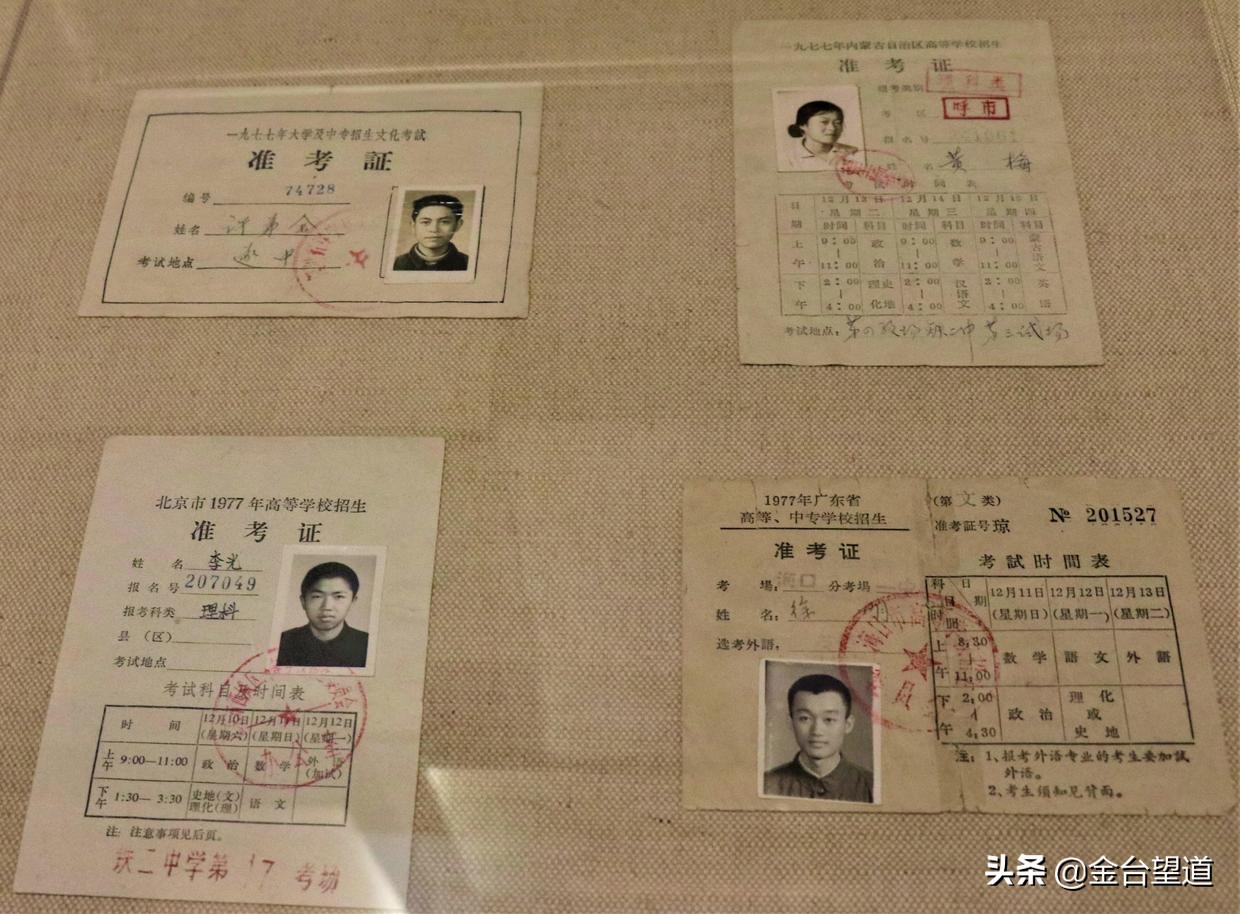 一九七七年大学及中专招生文化考試
准考証
编号 74728
姓名
考试地点
一九七七年内蒙古自治区高等学校招生
准考证
报考类别
考区 呼市
报名号
姓名 黄梅
考试时间表
日期 12月13日 星期二 12月14日 星期三 12月15日 星期四
时间 科目 时间 科目 时间 科目
上午 9:00—11:00 政治 9:00—11:00 数学 9:00—11:00 蒙古语文
下午 2:00—4:00 理化 史地 2:00—4:00 汉语文 2:00—4:00 英语
考试地点:
北京市1977年高等学校招生
准考证
姓名 李光
报名号 207049
报考科类 理科
县(区)
考试地点
考试科目及时间表
时间 12月10日(星期六) 12月11日(星期日) 12月12日(星期一)
上午 9:00—11:00 政治 数学 外语(加试)
下午 1:30—3:30 史地(文) 理化(理) 语文
注:注意事项见后页。
铁二中学第17考场
1977年广东省
高等、中专学校招生
准考证
考場: 海口 分考場 一中
姓名: 徐
选考外語:
(第文类)
准考证号琼 № 201527
考試时間表
科目 日期 时間 12月11日(星期日) 12月12日(星期一) 12月13日(星期二)
上午 8:30—11:00 数学 語文 外語
下午 2:00—4:30 政治 理化或史地
注:1、报考外语专业的考生要加試
外语。
2、考生须知见背面。
头条 @金台望道